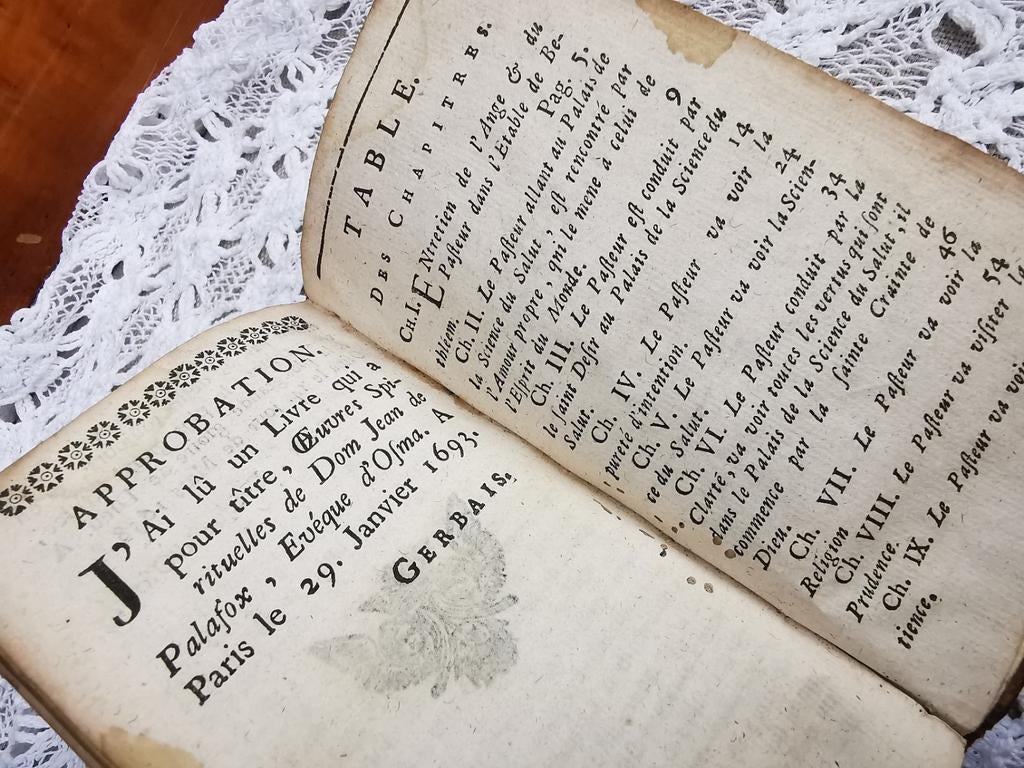 APPROBATION.
J'Ai lû un Livre qui a
pour tître, Œuvres Spi-
rituelles de Dom Jean de
Palafox, Evéque d'Oſma. A
Paris le 29. Janvier 1693.
GERBAIS.
TABLE
DES CHAPITRES.
CH. I. ENtretien de l'Ange & du
Paſteur dans l'Etable de Be-
thléem. Pag. 5.
Ch. II. Le Paſteur allant au Palais de
la Science du Salut, eſt rencontré par
l'Amour propre, qui le mene à celui de
l'Eſprit du Monde.
Ch. III. Le Paſteur eſt conduit par
le ſaint Deſir au Palais de la Science du
Salut. 9
Ch. IV. Le Paſteur va voir la
pureté d'intention. 14
Ch. V. Le Paſteur va voir la Scien-
ce du Salut. 24
Ch. VI. Le Paſteur conduit par la
Clarté, va voir toutes les vertus qui ſont
dans le Palais de la Science du Salut; il
commence par la ſainte Crainte de
Dieu. 34
Ch. VII. Le Paſteur va voir la
Religion 46
Ch. VIII. Le Paſteur va viſiter la
Prudence. 54
Ch. IX. Le Paſteur va voir
tience.